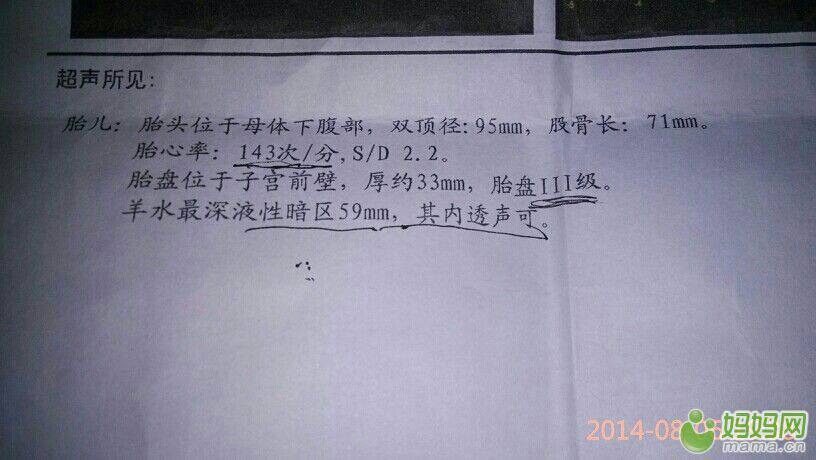 超声所见:
胎儿: 胎头位于母体下腹部, 双顶径: 95mm, 股骨长: 71mm。
胎心率: 143次/分, S/D 2.2。
胎盘位于子宫前壁, 厚约33mm, 胎盘III级。
羊水最深液性暗区59mm, 其内透声可。
2014-08
妈妈网
mama.cn